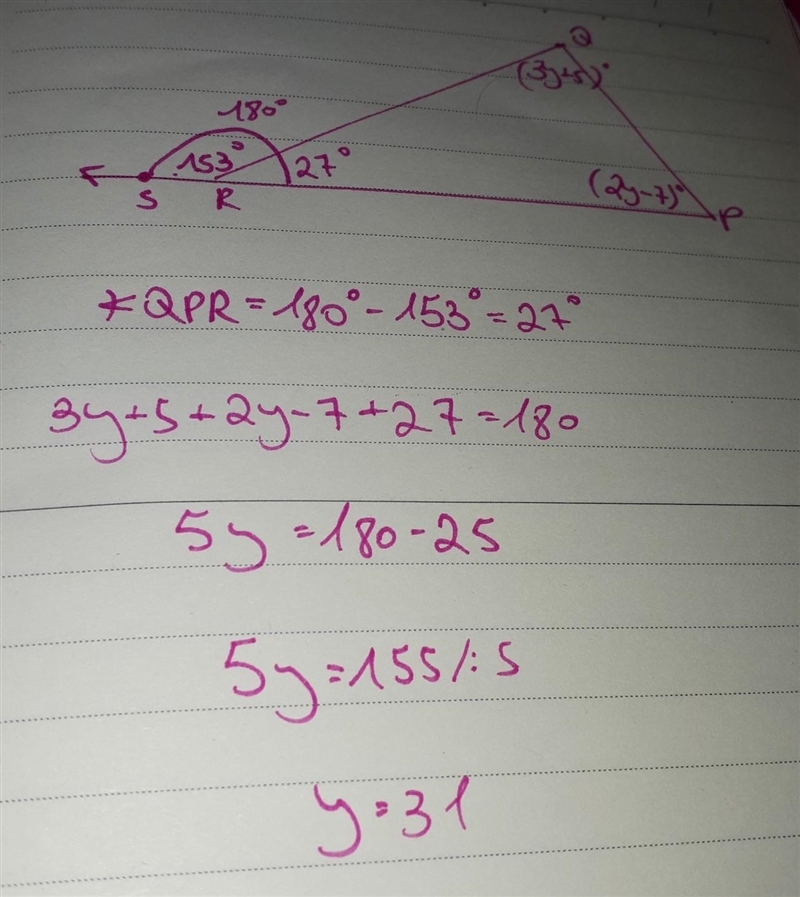 Q
(3y+5)°
180°
153°
27°
(2y-7)°
S
R
P
∢QPR=180°-153°=27°
3y+5+2y-7+27=180
5y=180-25
5y=155/:5
y=31